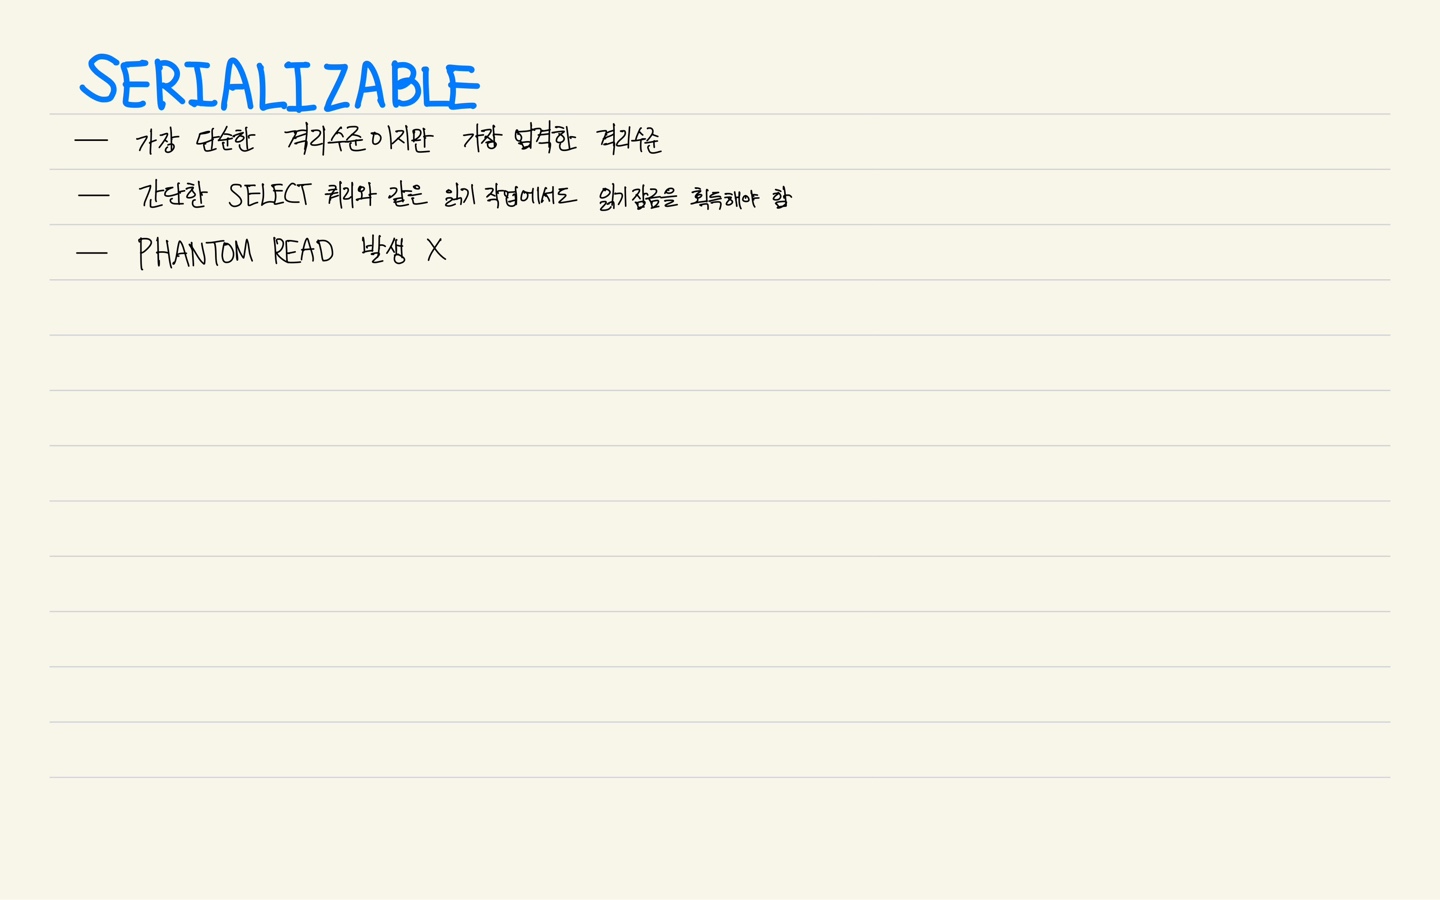 SERIALIZABLE
— 가장 단순한 격리수준이지만 가장 엄격한 격리수준
— 간단한 SELECT 쿼리와 같은 읽기 작업에서도 읽기 잠금을 획득해야 함
— PHANTOM READ 발생 X